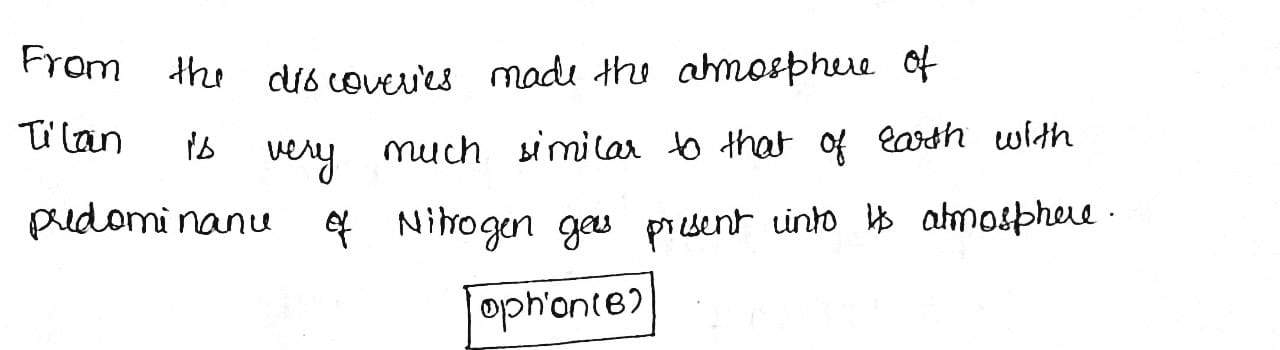 From the discoveries made the atmosphere of
Titan is very much similar to that of earth with
predominance of Nitrogen gas present into its atmosphere.
option(B)